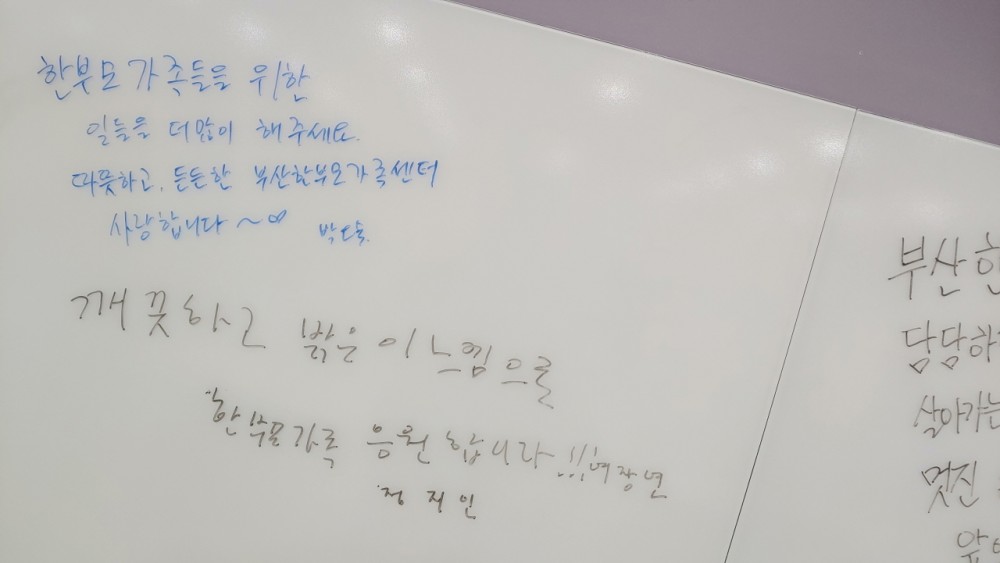 한부모가족들을 위한
일들을 더많이 해주세요.
따뜻하고, 든든한 부산한부모가족센터
사랑합니다~♡
깨끗하고 밝은 이 느낌으로
한부모가족 응원합니다!!!
정지인
부산한
담당하
살아가는
멋진